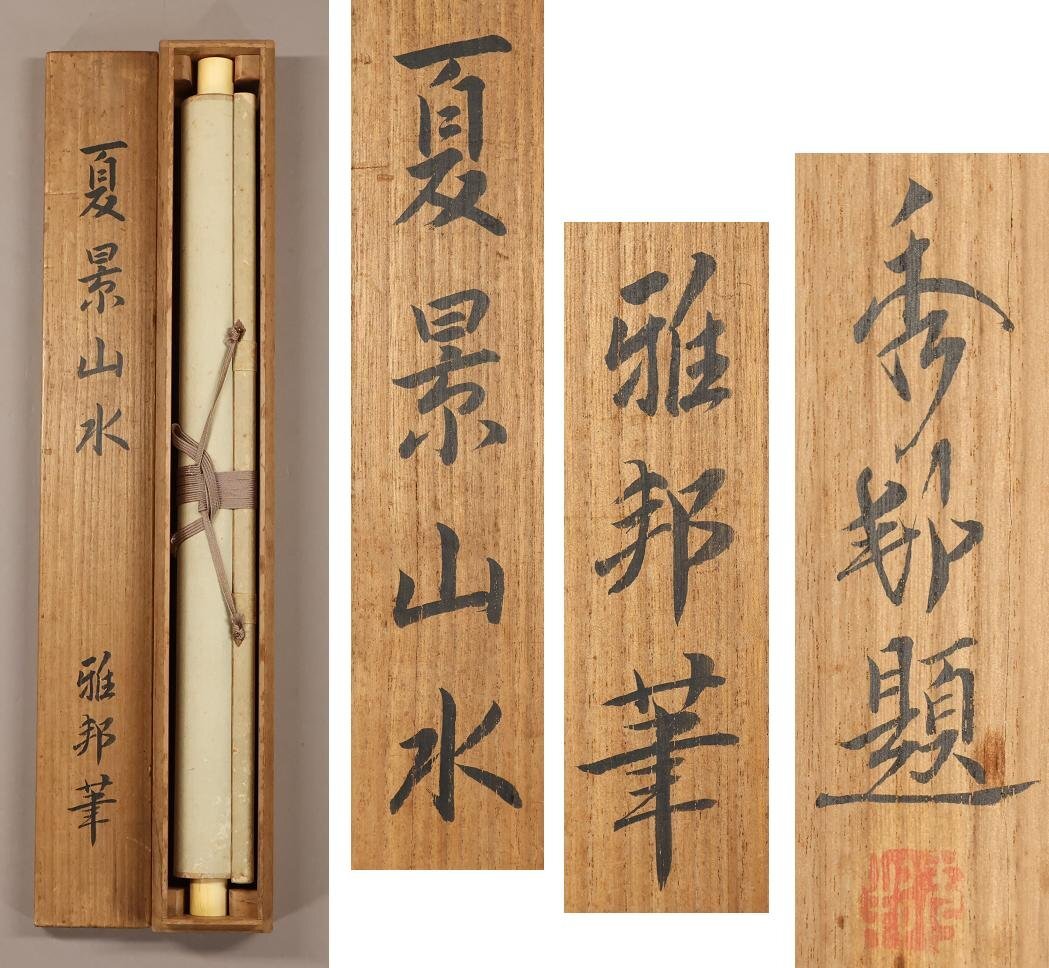 夏景山水
雅邦筆
夏景山水
雅邦筆
秀邦題